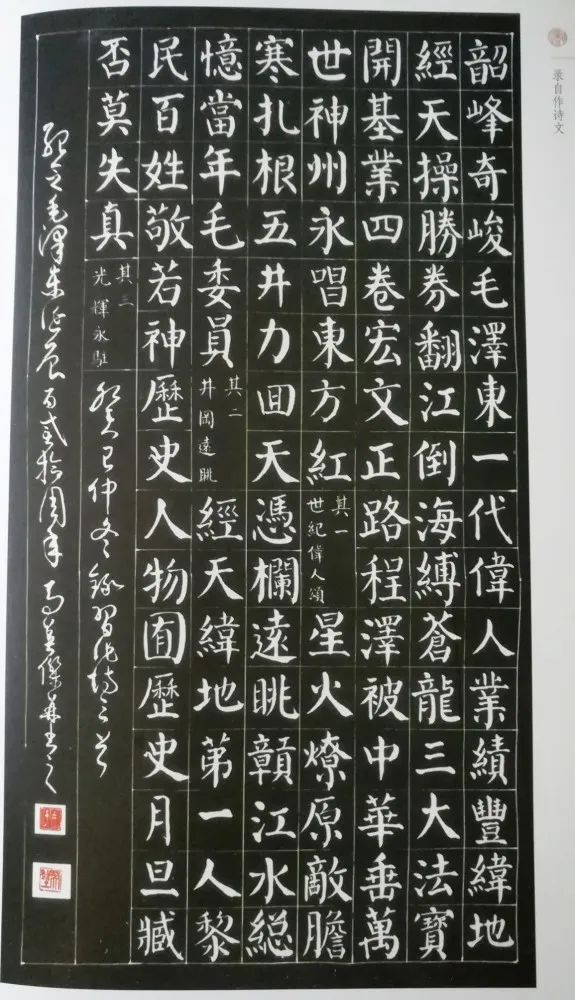 录自作诗文
韶峰奇峻毛澤東一代偉人業績豐緯地
經天操勝券翻江倒海縛蒼龍三大法寶
開基業四卷宏文正路程澤被中華垂萬
世神州永唱東方紅 其一 世紀偉人頌 星火燎原敵膽
寒扎根五井力囬天憑欄遠眺贛江水総
憶當年毛委員 其二 井岡遠眺 經天緯地第一人黎
民百姓敬若神歷史人物囿歷史月旦臧
否莫失真 其三 光輝永駐 癸巳仲冬錄習作詩三首
紀之毛澤東诞辰百弍拾周年